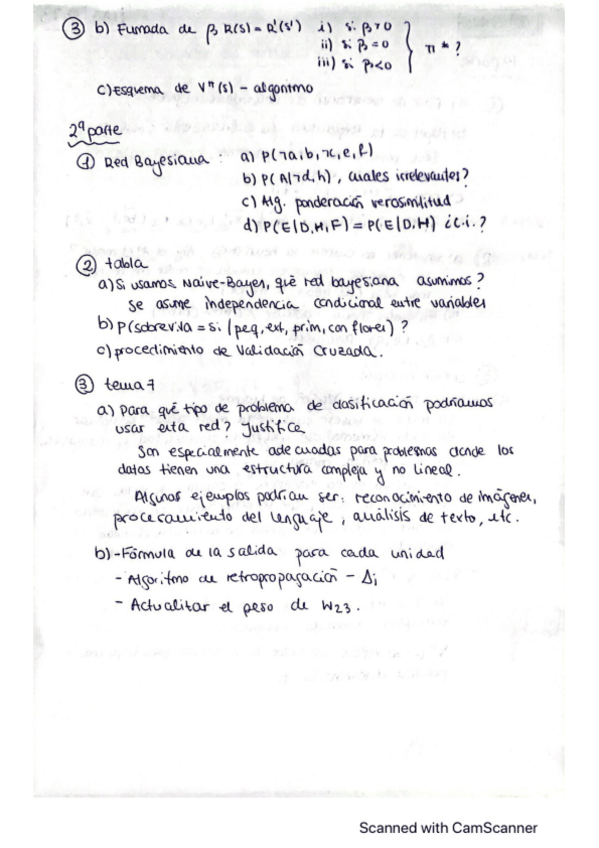 ③ b) Fumada de β R(s) = R'(s') i) si β>0
ii) si β=0 π*?
iii) si β<0
c) Esquema de Vπ(s) - algoritmo
2ª parte
① Red Bayesiana: a) P(¬a,b,¬c,e,f)
b) P(A|¬d,h), cuales irrelevantes?
c) Alg. ponderación verosimilitud
d) P(E|D,H,F) = P(E|D,H) ¿c.i.?
② tabla
a) Si usamos Naive-Bayes, qué red bayesiana asumimos?
Se asume independencia condicional entre variables
b) P(sobreviva = si | peq, ext, prim, con flores)?
c) procedimiento de Validación Cruzada.
③ tema 7
a) Para qué tipo de problema de clasificación podríamos
usar esta red? Justifica
Son especialmente adecuadas para problemas donde los
datos tienen una estructura compleja y no lineal.
Algunos ejemplos podrían ser: reconocimiento de imágenes,
procesamiento del lenguaje, análisis de texto, etc.
b) - Fórmula de la salida para cada unidad
- Algoritmo de retropropagación - Δi
- Actualizar el peso de W23.
Scanned with CamScanner